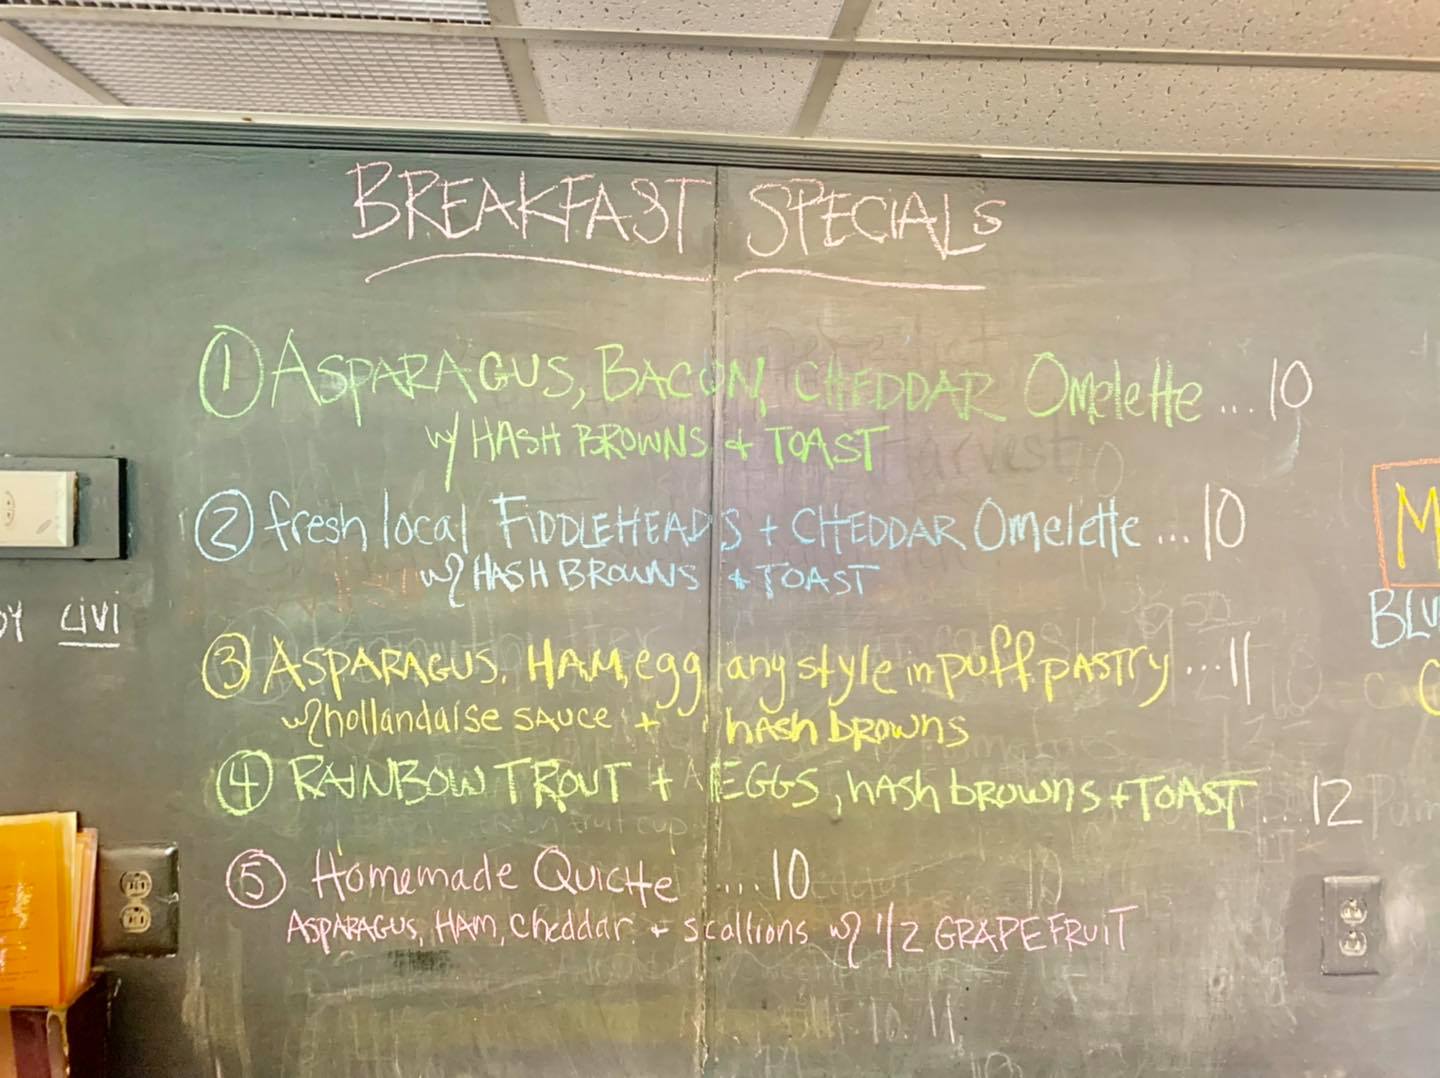 BREAKFAST SPECIALS
① ASPARAGUS, BACON, CHEDDAR Omelette ... 10
w/ HASH BROWNS + TOAST
② fresh local FIDDLEHEADS + CHEDDAR Omelette ... 10
w/ HASH BROWNS + TOAST
③ ASPARAGUS, HAM, egg any style in puff pASTRY ... 11
w/ hollandaise SAUCE + hASh bROWNS
④ RAINBOW TROUT + EGGS, hASh browns + TOAST ... 12
⑤ Homemade QuicHe .... 10
ASPARAGUS, HAM, cheddar + scallions w/ 1/2 GRAPEFRUIT
civi
M
BLU